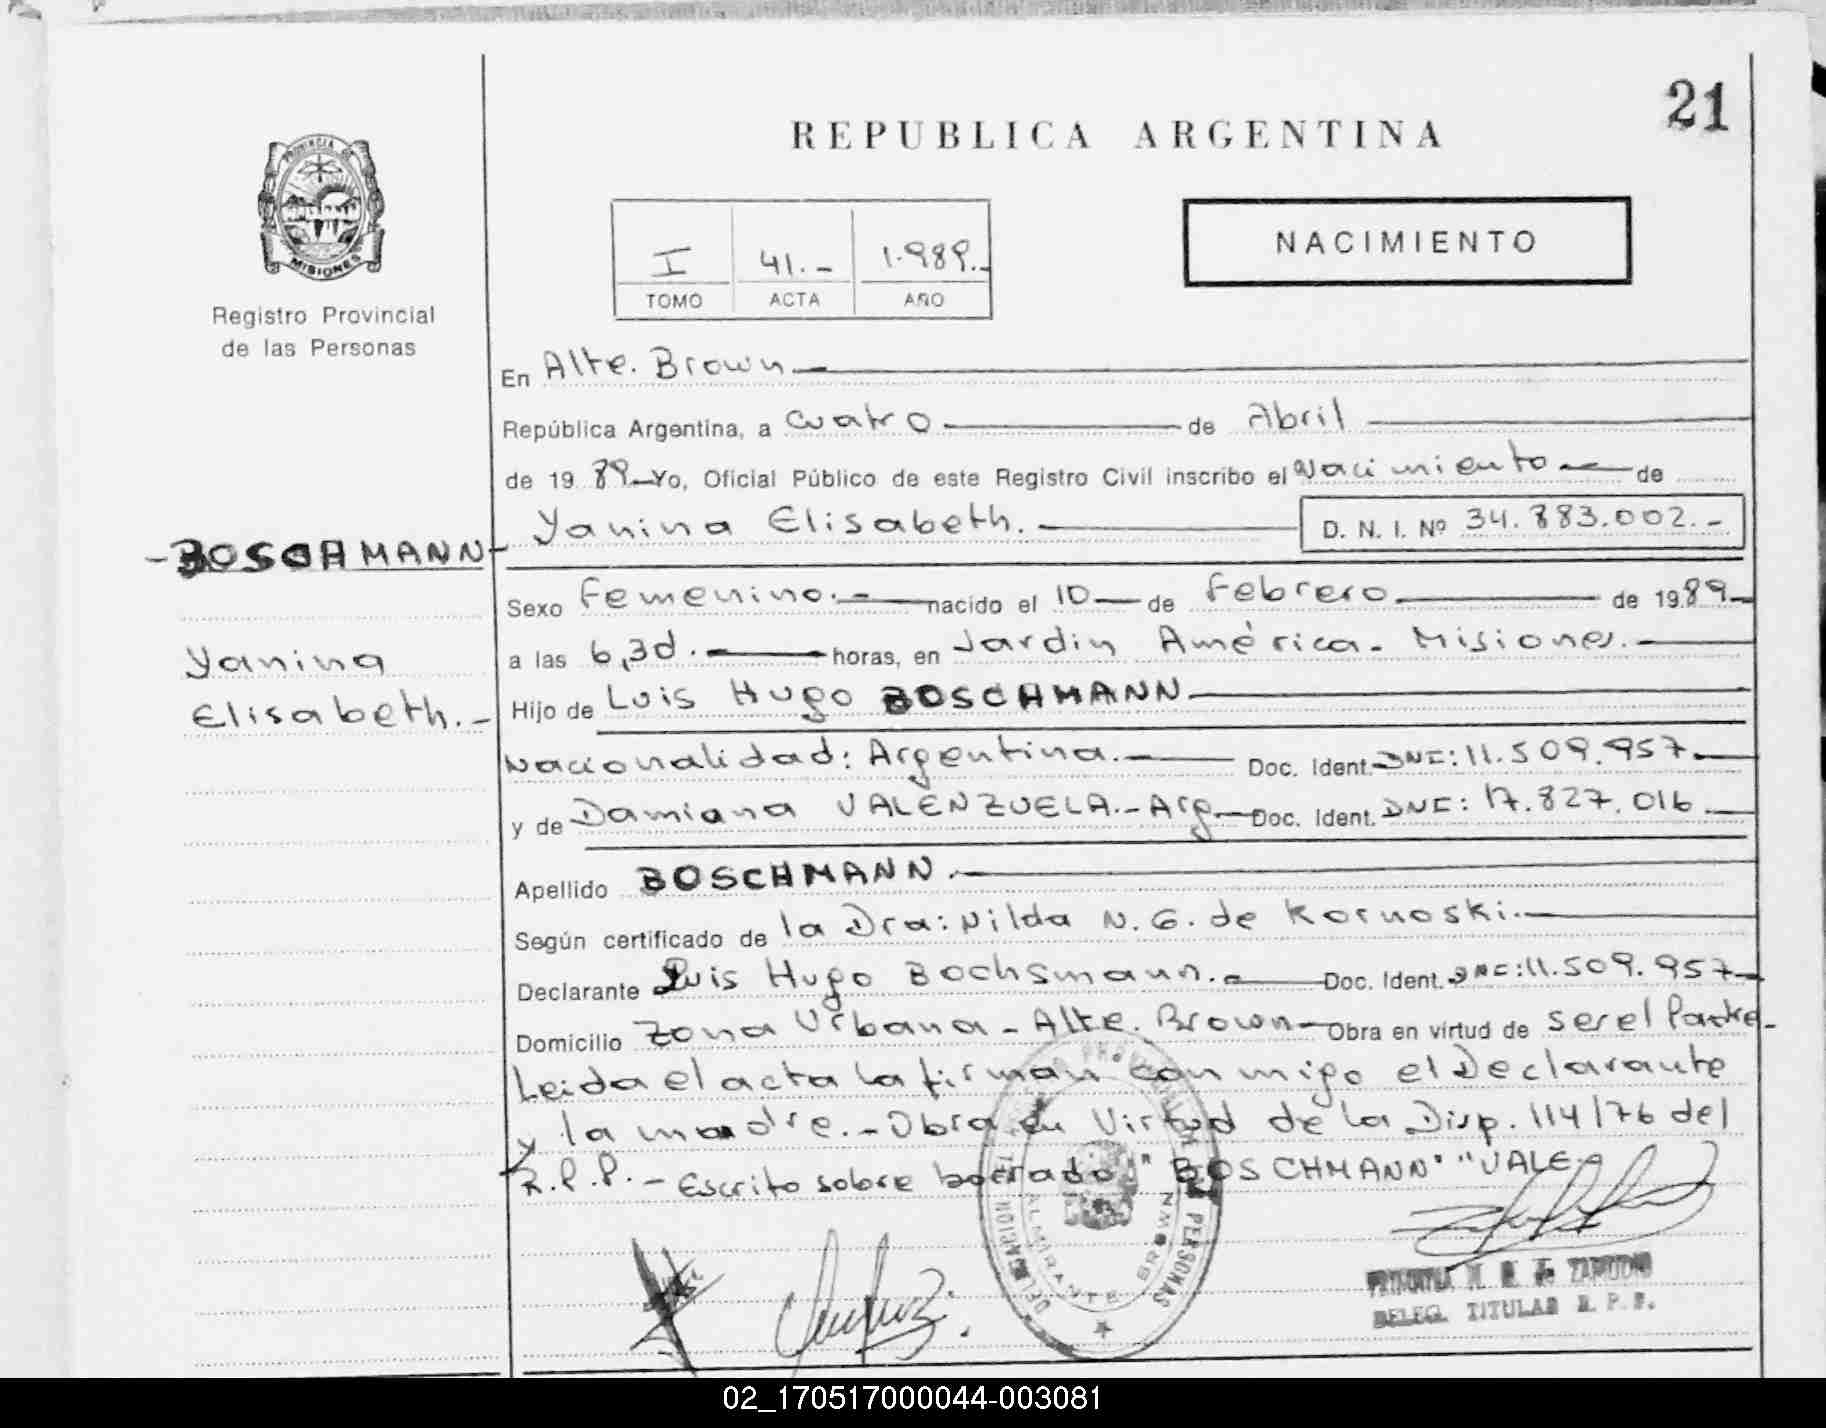 21
REPUBLICA ARGENTINA
PROVINCIA DE
MISIONES
Registro Provincial
de las Personas
I 41.- 1.989.-
TOMO ACTA AÑO
NACIMIENTO
En Alte. Brown
República Argentina, a cuatro de Abril
de 1989 Yo, Oficial Público de este Registro Civil inscribo el Nacimiento de
Yanina Elisabeth. D. N. I. Nº 34.883.002.-
-BOSCHMANN-
Yanina
Elisabeth.-
Sexo Femenino.- nacido el 10 de Febrero de 1989
a las 6,30. horas, en Jardin América - Misiones.-
Hijo de Luis Hugo BOSCHMANN
Nacionalidad: Argentina. Doc. Ident. DNI: 11.509.957
y de Damiana VALENZUELA.- Arg. Doc. Ident. DNI: 17.827.016
Apellido BOSCHMANN.
Según certificado de la Dra: Nilda N. G. de Kornoski.
Declarante Luis Hugo Bochsmann. Doc. Ident. DNI: 11.509.957
Domicilio Zona Urbana - Alte. Brown Obra en virtud de ser el Padre-
Leida el acta la firman con migo el Declarante
y la madre.- Obra en Virtud de la Disp. 114/76 del
R.P.P.- Escrito sobre borrado "BOSCHMANN" "VALE
DELEG. TITULAR R. P. P.
ALMIRANTE BROWN
PERSONAS
02_170517000044-003081